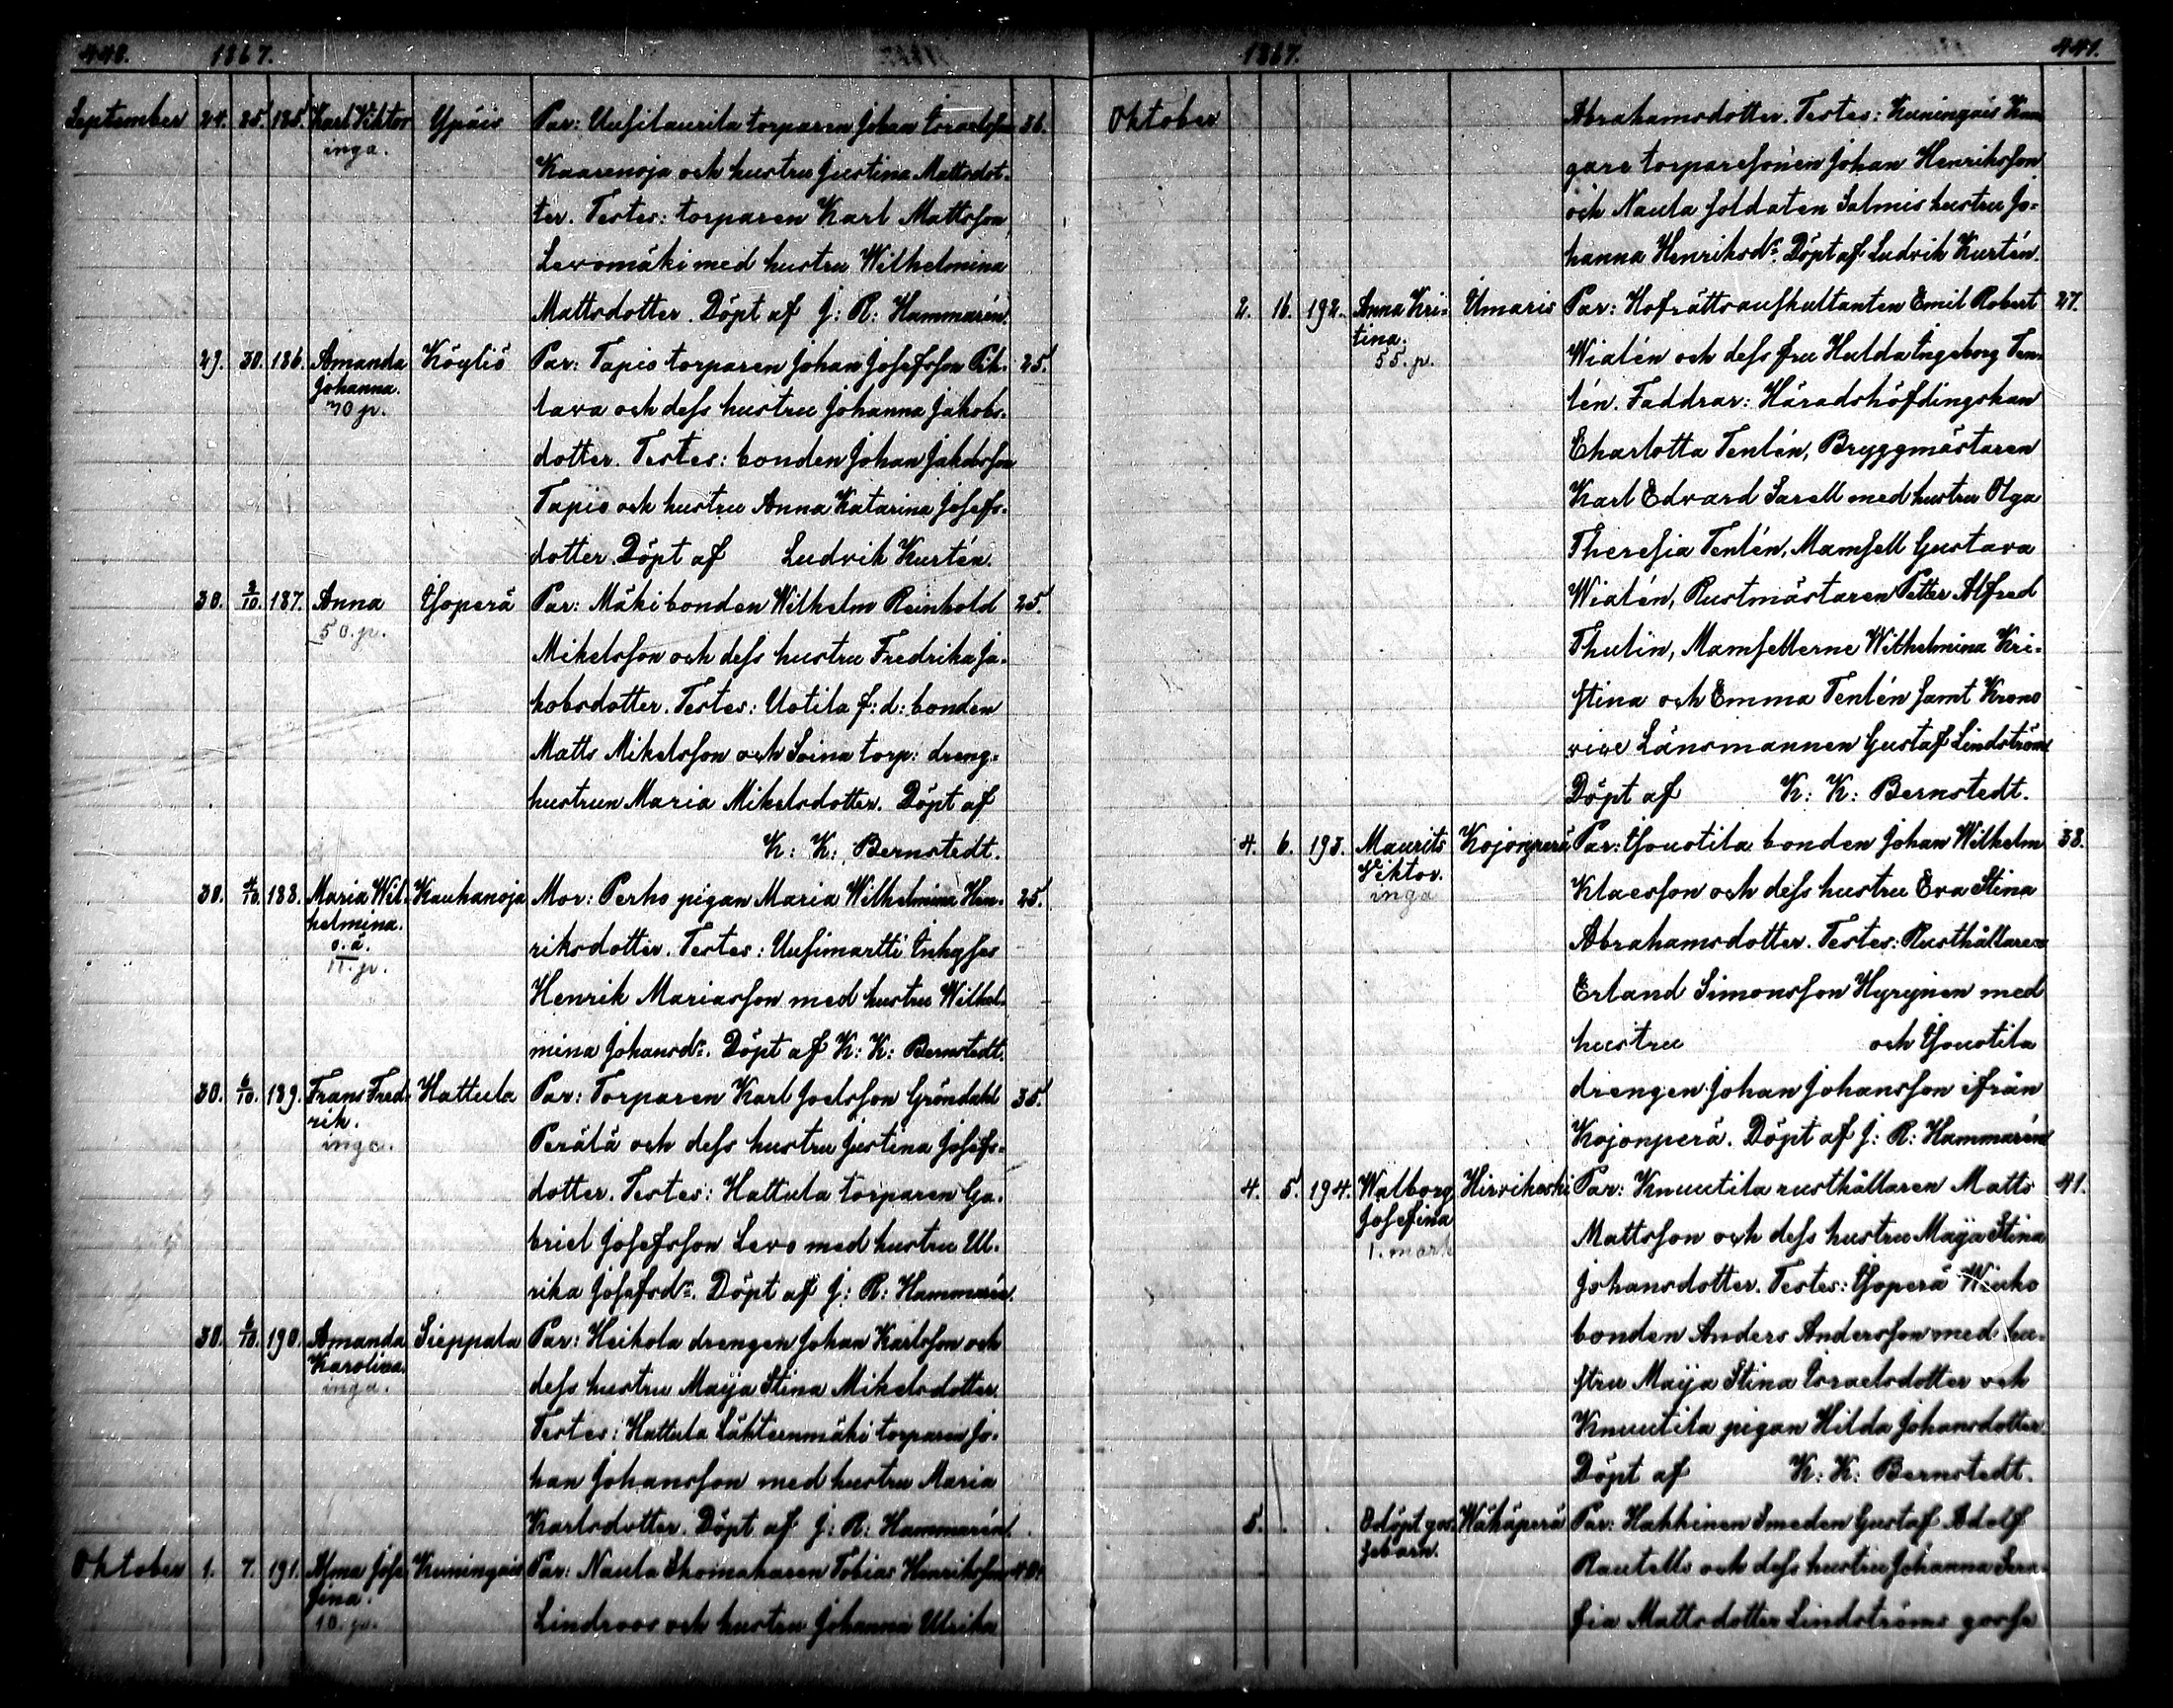 440. 1867.
September 24. 25. 185. Karl Viktor Ypäis Par: Uusitaurila torparen Johan Israelsson 36.
inga.
Kaarenoja och hustru Justina Mattsdot-
ter. Testes: torparen Karl Mattsson
Levomäki med hustru Wilhelmina
Mattsdotter. Döpt af J: R: Hammarén.
29. 30. 186. Amanda Köyliö Par: Tapio torparen Johan Josefsson Pih- 25.
Johanna.
70 p.
lava och dess hustru Johanna Jakobs-
dotter. Testes: bonden Johan Jakobsson
Tapio och hustru Anna Katarina Josefs-
dotter. Döpt af Ludvik Kurtén.
30. 2/10. 187. Anna Yoperä Par: Mäki bonden Wilhelm Reinhold 25.
50. p.
Mikelsson och dess hustru Fredrika Ja-
kobsdotter. Testes: Uotila f: d: bonden
Matts Mikelsson och Soina torp: dreng-
hustrun Maria Mikelsdotter. Döpt af
K: K: Bernstedt.
30. 4/10. 188. Maria Wil- Kauhanoja Mor: Perho pigan Maria Wilhelmina Hen- 25.
helmina.
o. ä.
11. p.
riksdotter. Testes: Uusimartti Inhyses
Henrik Mariasson med hustru Wilhel-
mina Johansdr. Döpt af K: K: Bernstedt.
30. 6/10. 189. Frans Fred- Hattula Par: Torparen Karl Joelsson Gröndahl 35.
rik.
inga.
Perälä och dess hustru Justina Josefs-
dotter. Testes: Hattula torparen Ga-
briel Josefsson Levo med hustru Ul-
rika Josefsdr. Döpt af J: R: Hammarén.
30. 6/10. 190. Amanda Sieppala Par: Heikola drengen Johan Karlsson och
Karolina.
inga.
dess hustru Maija Stina Mikelsdotter.
Testes: Hattula Lähteenmäki torparen Jo-
han Johansson med hustru Maria
Karlsdotter. Döpt af J: R: Hammarén.
Oktober 1. 7. 191. Alma Jose- Kuningais Par: Naula Skomakaren Tobias Henriksson 40.
fina.
10. p.
Lindroos och hustru Johanna Ulrika
1867. 441.
Oktober Abrahamsdotter. Testes: Kuningais Kan-
gare torparesonen Johan Henriksson
och Naula soldaten Salmis hustru Jo-
hanna Henriksdr. Döpt af Ludvik Kurtén.
2. 16. 192. Anna Kri- Urnaris Par: Hofrättsauskultanten Emil Robert 27.
tina.
55. p.
Wialén och dess fru Hulda Ingeborg Ten-
lén. Faddrar: Häradshöfdingskan
Charlotta Tenlén, Bryggmästaren
Karl Edvard Sarell med hustru Olga
Theresia Tenlén, Mamsell Gustava
Wialén, Rustmästaren Petter Alfred
Thulin, Mamsellerne Wilhelmina Kri-
stina och Emma Tenlén samt Krono
vice Länsmannen Gustaf Lindström
Döpt af K: K: Bernstedt.
4. 6. 193. Maurits Kojonperä Par: Youotila bonden Johan Wilhelm 38.
Viktor.
inga
Klaesson och dess hustru Eva Stina
Abrahamsdotter. Testes: Rusthållaren
Erland Simonsson Hyrynen med
hustru och Youotila
drengen Johan Johansson ifrån
Kojonperä. Döpt af J: R: Hammarén
4. 5. 194. Walborg Hirvikoski Par: Knuutila rusthållaren Matts 41.
Josefina
1. mark
Mattsson och dess hustru Maija Stina
Johansdotter. Testes: Yoperä Wiuho
bonden Anders Andersson med hu-
stru Maija Stina Israelsdotter och
Knuutila pigan Hilda Johansdotter
Döpt af K: K: Bernstedt.
5. Odöpt gos- Wähäperä Par: Hakkinen Smeden Gustaf Adolf
sebarn.
Rautells och dess hustru Johanna Sera-
fia Mattsdotter Lindströms gosse